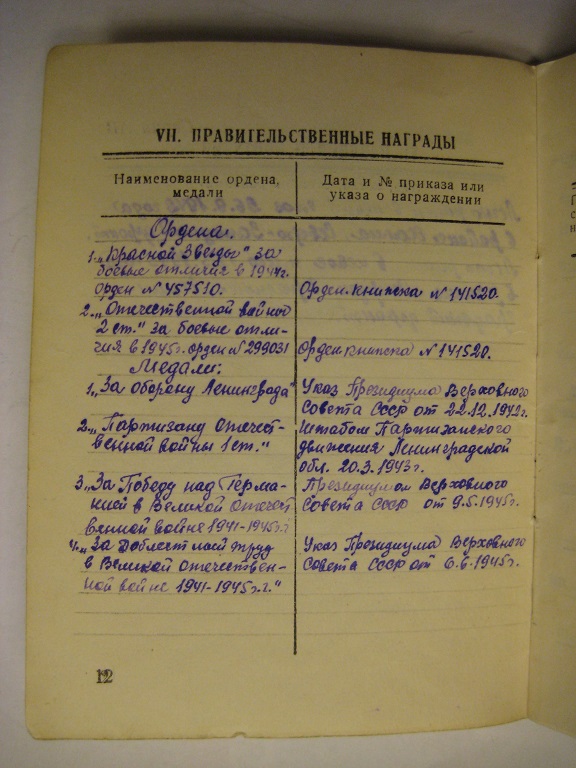 VII. ПРАВИТЕЛЬСТВЕННЫЕ НАГРАДЫ
Наименование ордена,
медали
Дата и № приказа или
указа о награждении
Ордена.
1. „Красной Звезды" за
боевые отличия в 1944г.
орден № 457510.
Орден.книжка № 141520.
2. „Отечественной войны
2 ст." за боевые отли-
чия в 1945г. орден № 299031
Орден.книжка № 141520.
Медали:
1. „За оборону Ленинграда"
Указ Президиума Верховного
Совета СССР от 22.12.1942г.
2. „Партизану Отечест-
венной войны 1 ст."
Штабом Партизанского
движения Ленинградской
обл. 20.3.1943г.
3. „За Победу над Герма-
нией в Великой отечест
венной войне 1941-1945г.г.
Президиум Верховного
Совета СССР от 9.5.1945г.
4. „За доблестный труд
в Великой отечествен-
ной войне 1941-1945г.г."
Указ Президиума Верховного
Совета СССР от 6.6.1945г.
12